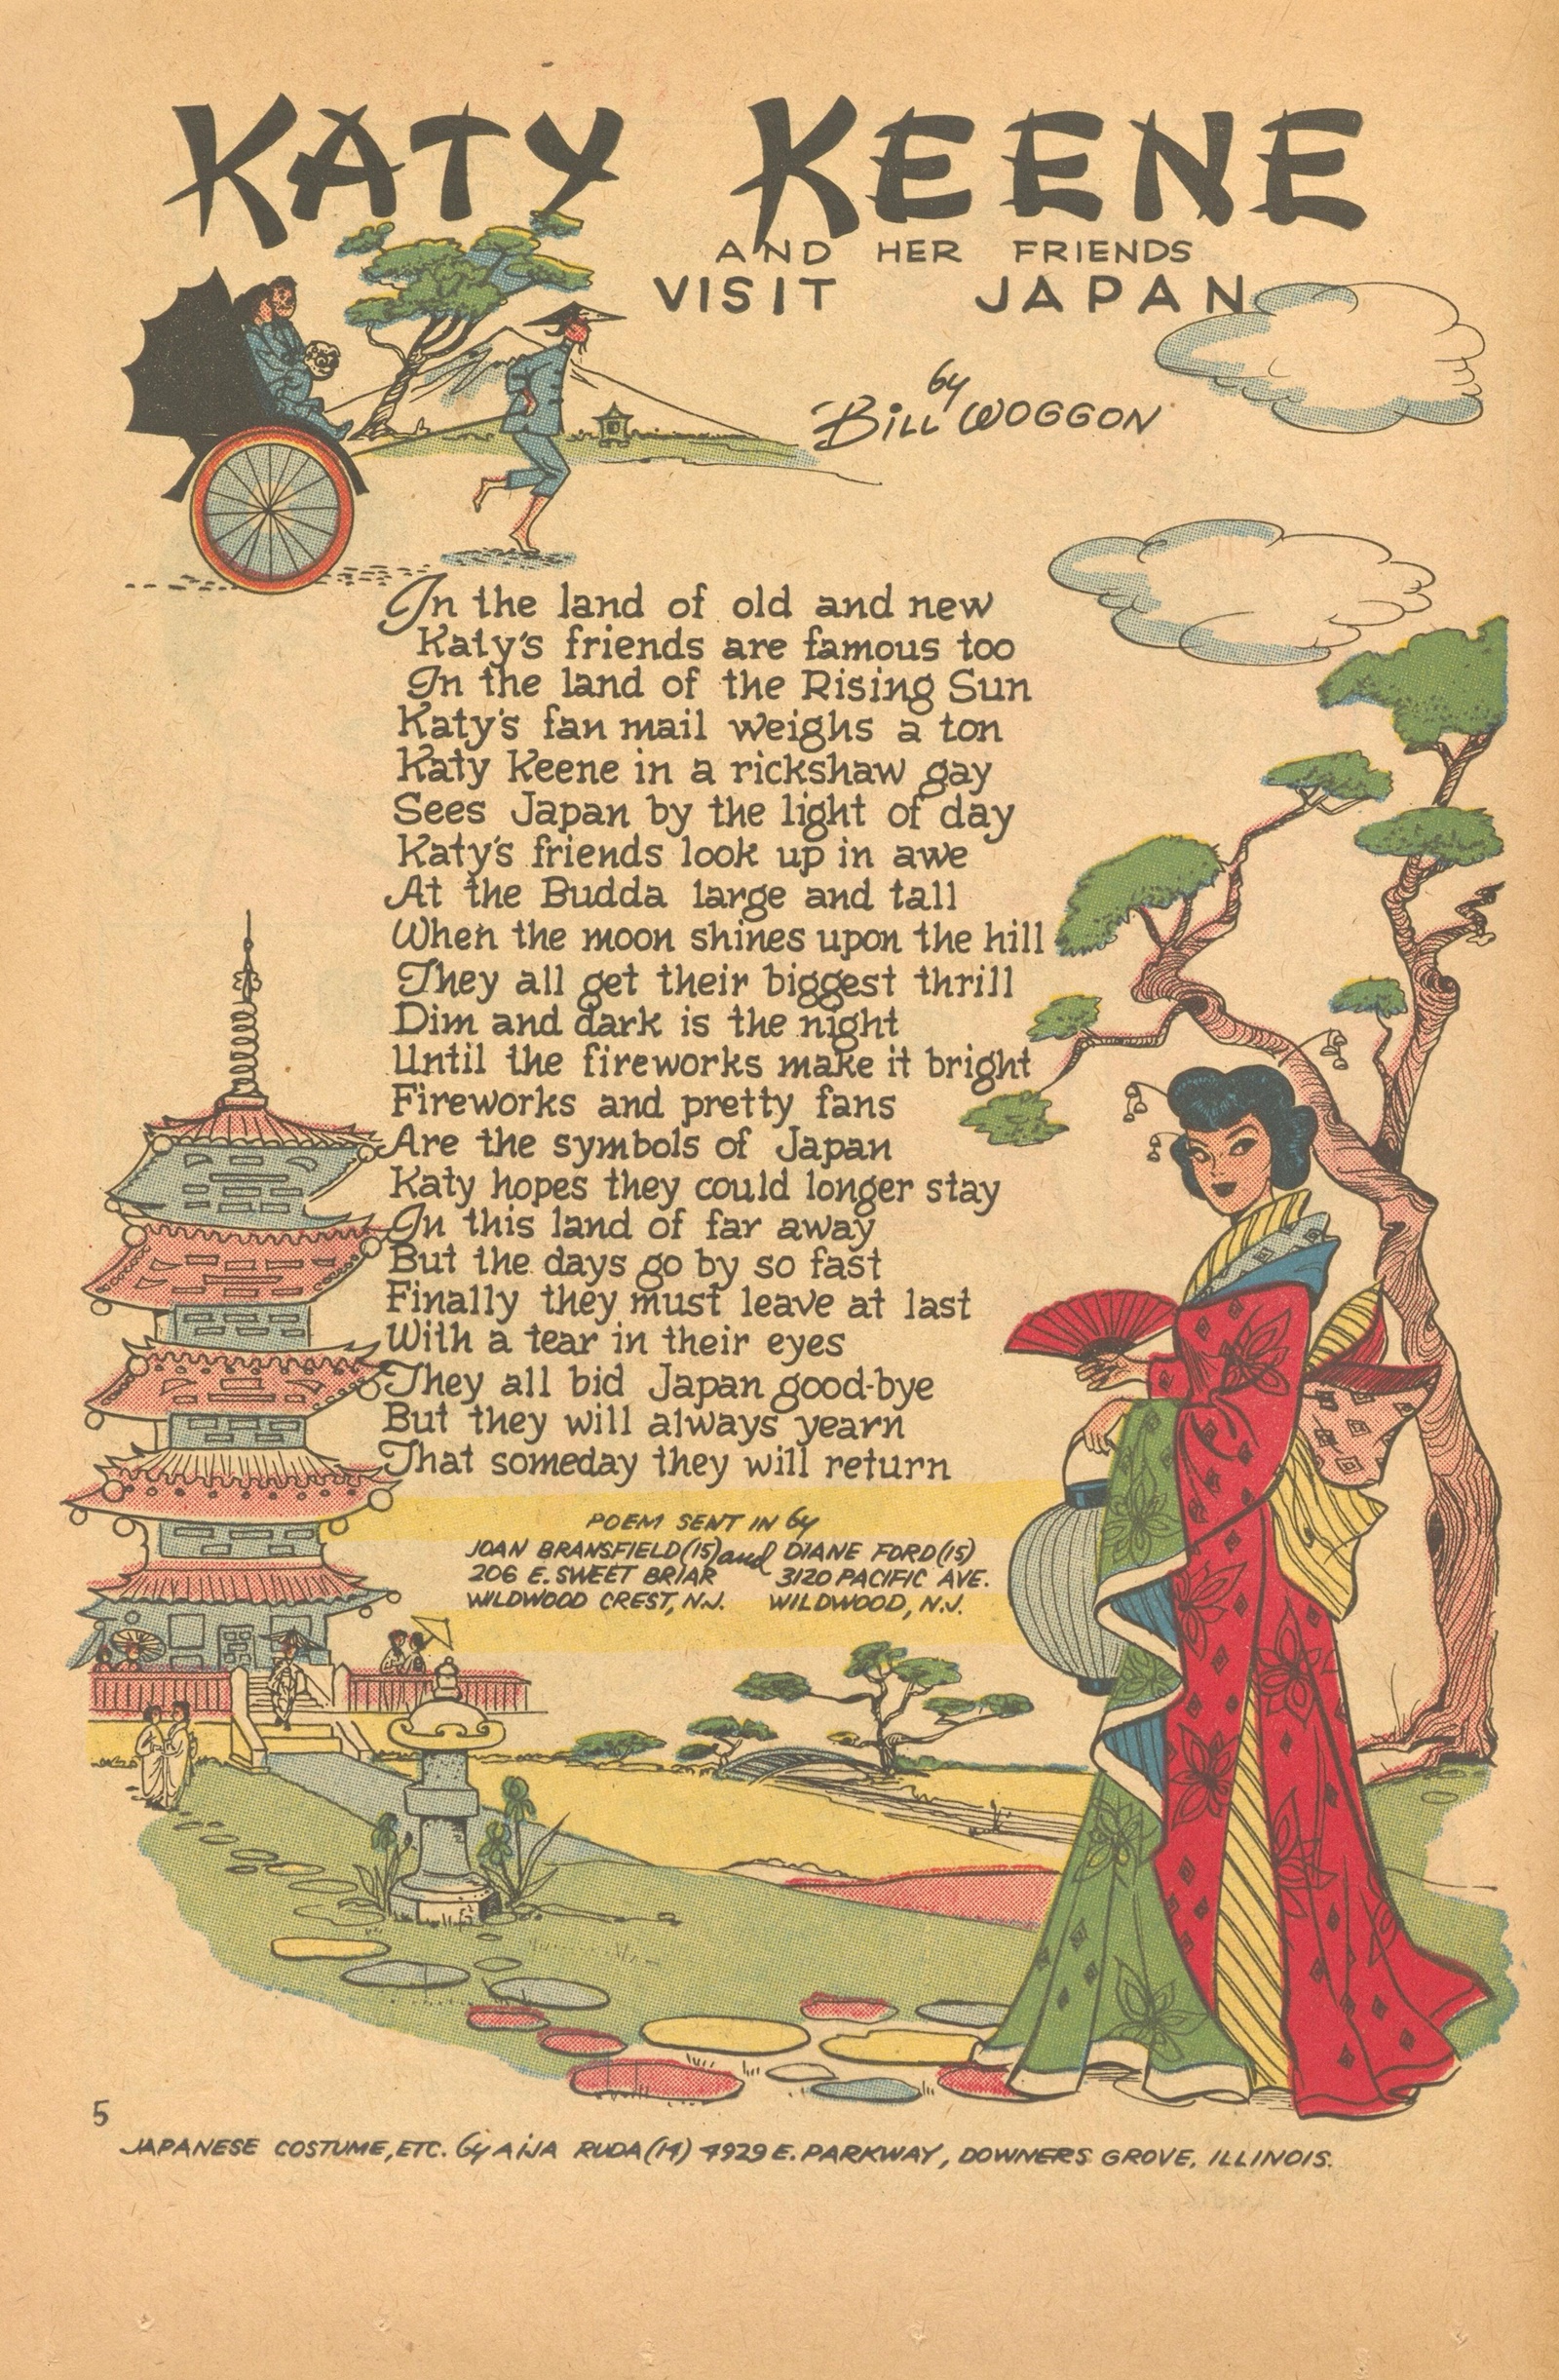 KATY KEENE
AND HER FRIENDS
VISIT JAPAN
by
BILL WOGGON
In the land of old and new
Katy's friends are famous too
In the land of the Rising Sun
Katy's fan mail weighs a ton
Katy Keene in a rickshaw gay
Sees Japan by the light of day
Katy's friends look up in awe
At the Budda large and tall
When the moon shines upon the hill
They all get their biggest thrill
Dim and dark is the night
Until the fireworks make it bright
Fireworks and pretty fans
Are the symbols of Japan
Katy hopes they could longer stay
In this land of far away
But the days go by so fast
Finally they must leave at last
With a tear in their eyes
They all bid Japan good-bye
But they will always yearn
That someday they will return
POEM SENT IN by
JOAN BRANSFIELD (15) and DIANE FORD (15)
206 E. SWEET BRIAR 3120 PACIFIC AVE.
WILDWOOD CREST, N.J. WILDWOOD, N.J.
5
JAPANESE COSTUME, ETC. by AIJA RUDA (14) 4929 E. PARKWAY, DOWNERS GROVE, ILLINOIS.